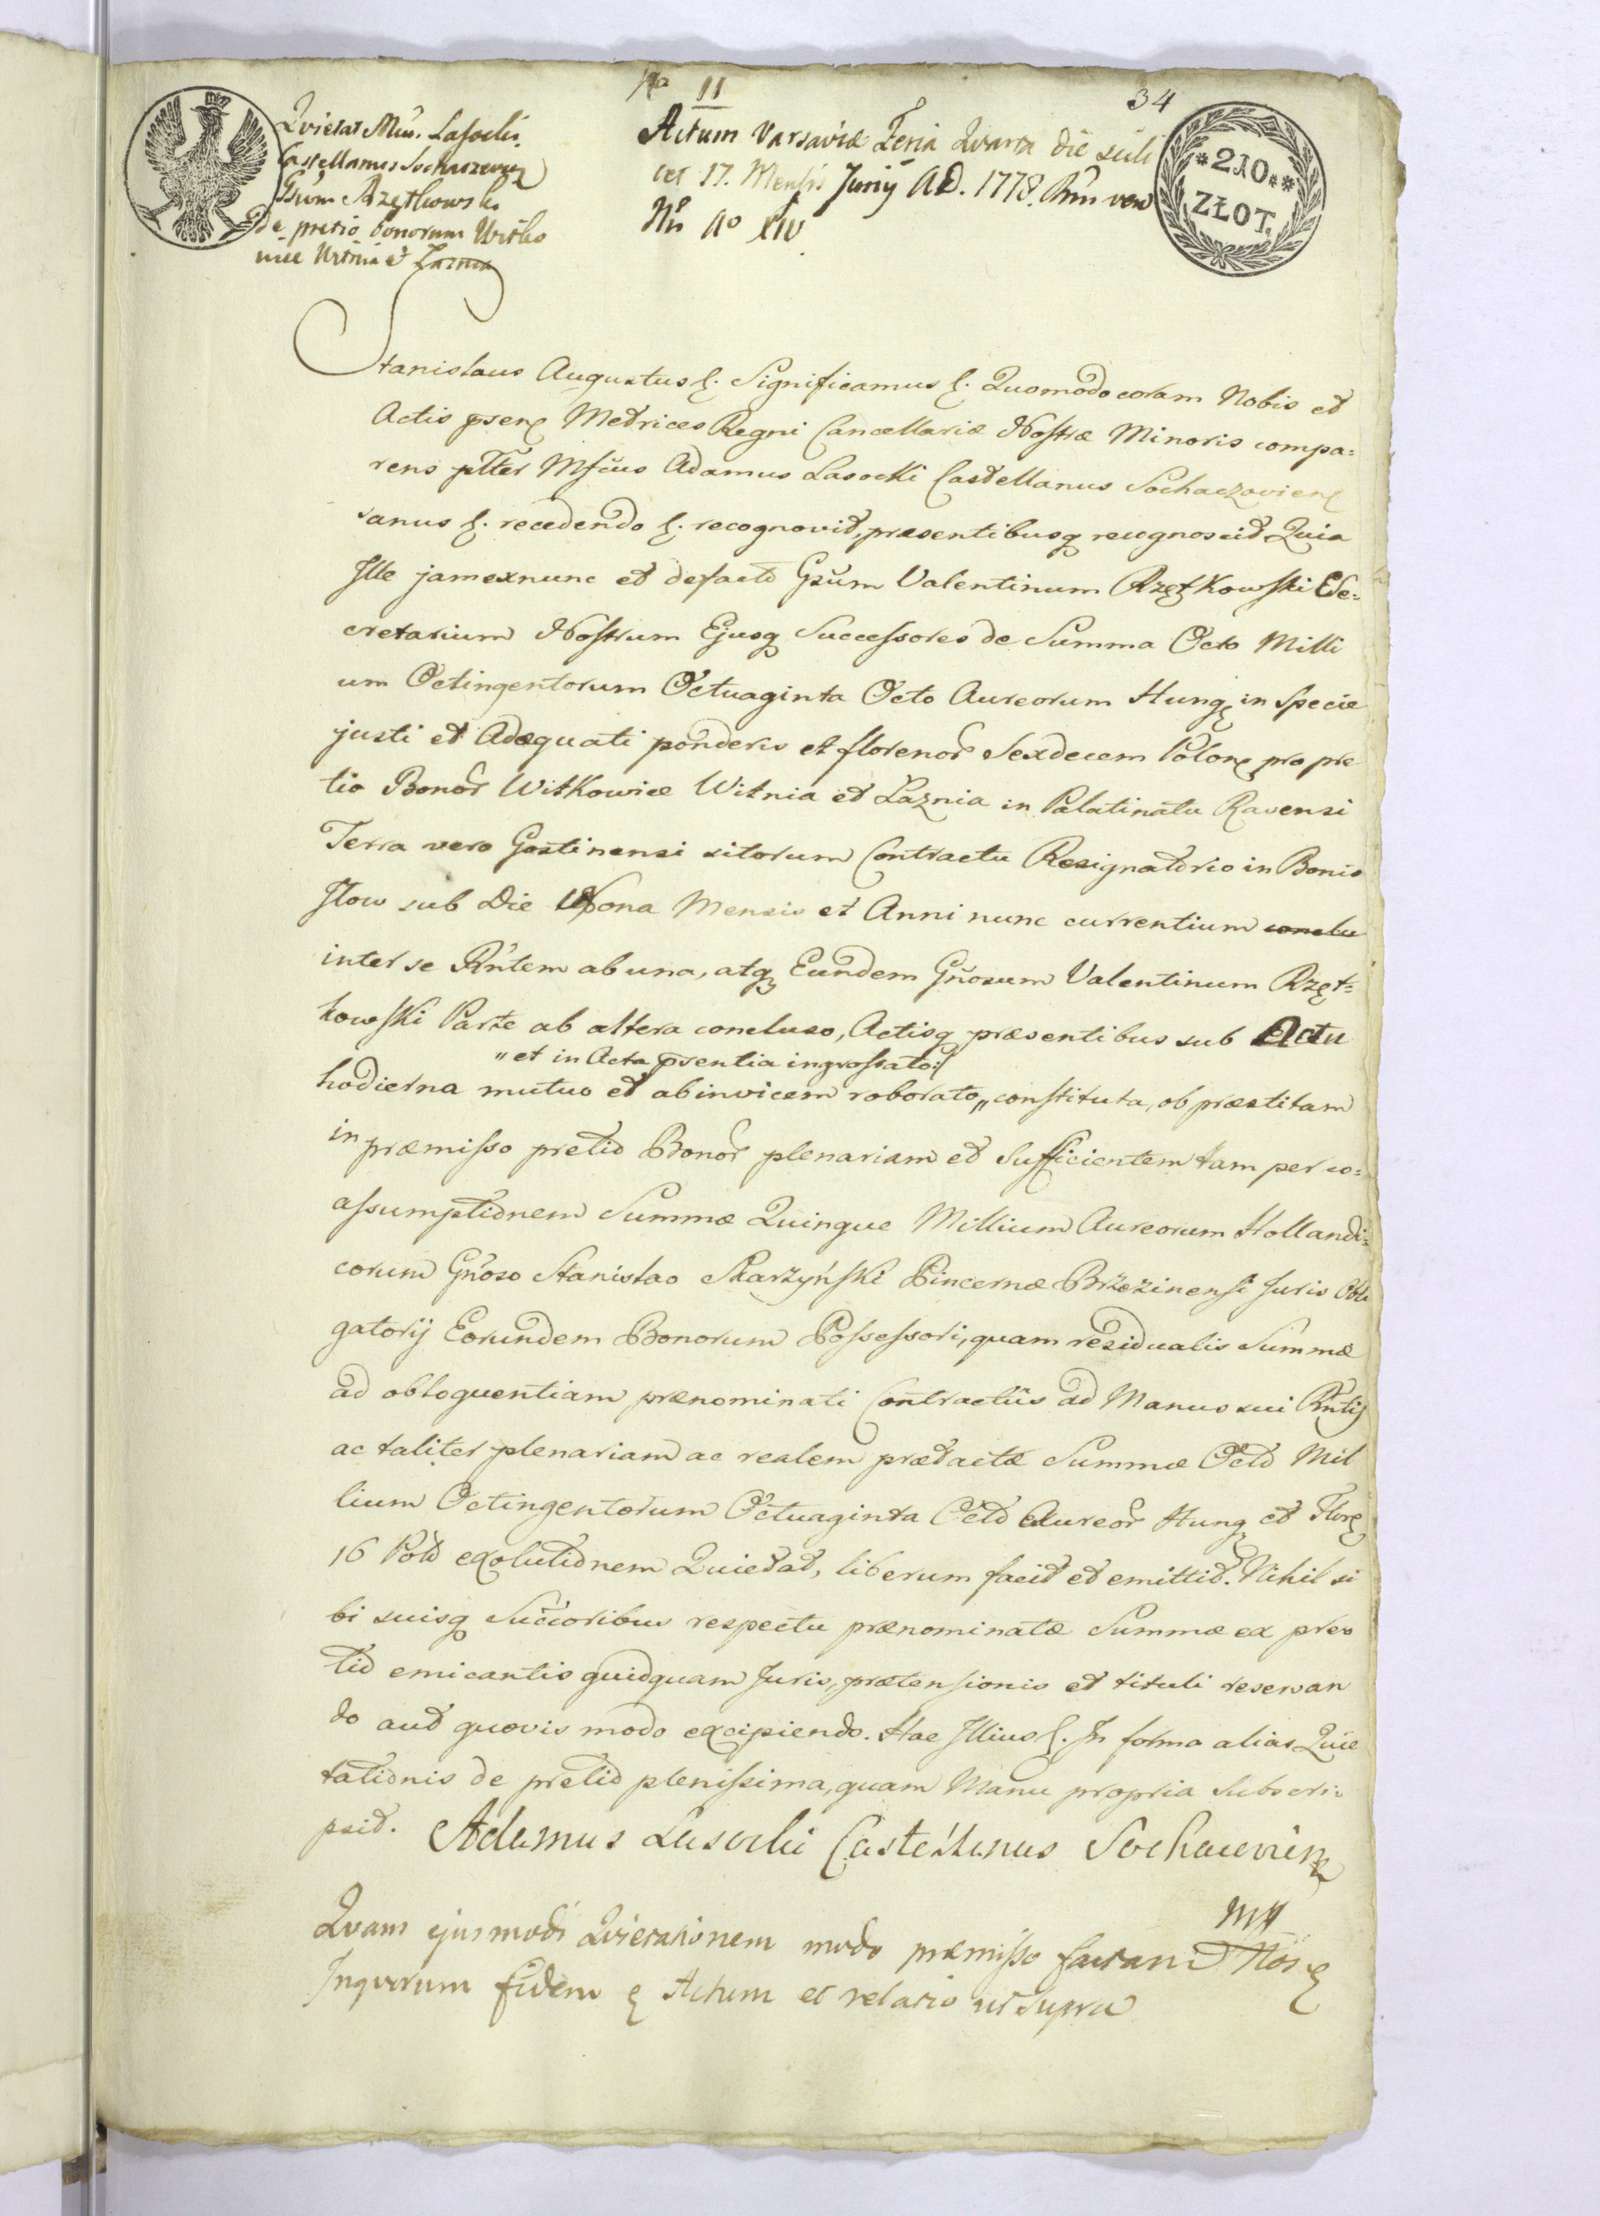 11
34
Quietat Mus. Lasocki
Castellanus Sochaczevien
Gsum Rzętkowski
De pretio bonorum Witko
wice Witnia et Łaznia
Actum Varsaviæ Feria Quarta die scili
cet 17. Mensis Junij A.D. 1778.
Nri Ao XIV
*210.**
ZŁOT.
Stanislaus Augustus &. Significamus &. Quomodo coram Nobis et
Actis psen Metrices Regni Cancellariæ Nostræ Minoris compa=
rens pltter Mfcus Adamus Lasocki Castellanus Sochaczovien
sanus &. recedendo &. recognovit, præsentibusq recognoscit Quia
Ille jam exnunc et defacto Gsum Valentinum Rzętkowski Se=
cretarium Nostrum Ejusq Successores de Summa Octo Milli
um Octingentorum Octuaginta Octo Aureorum Hung in Specie
justi et Adæquati ponderis et florenor Sexdecem Polon pro pre
tio Bonor Witkowice Witnia et Łaznia in Palatinatu Ravensi
Terra vero Gostinensi sitorum Contractu Resignatorio in Bonis
Iłow sub Die Nona Mensis et Anni nunc currentium conclu
inter se Rntem ab una, atq Eundem Gnosum Valentinum Rzęt=
kowski Parte ab altera concluso, Actisq præsentibus sub Actu
" et in Acta psentia ingrossato:/
hodierna mutuo et abinvicem roborato " constituta, ob præstitam
in præmisso pretio Bonor plenariam et Sufficientem tam per co=
assumptionem Summæ Quinque Millium Aureorum Hollandi=
corum Gnoso Stanislao Skarzyński Pincernæ Brzezinensi Juris Obli
gatorij Eorundem Bonorum Possessori, quam residualis Summæ
ad obloquentiam prænominati Contractûs ad Manus sui Rntis
ac taliter plenariam ac realem prædactæ Summæ Octo Mil
lium Octingentorum Octuaginta Octo Aureor Hung et Flor
16 Pol exolutionem Quietat, liberum facit et emittit. Nihil si
bi suisq Succoribus respectu prænominatæ Summæ ex pre
tio emicantis quidquam Juris, prætensionis et tituli reservan
do aut quovis modo excipiendo. Hac Illius &. In forma alias Quie
tationis de pretio plenissima, quam Manu propria Subscri=
psit. Adamus Lasocki Castellanus Sochacevien
mp
Quam ejusmodi Quietationem modo præmisso factam Nos &
In quorum fidem & Actum et relatio ut supra